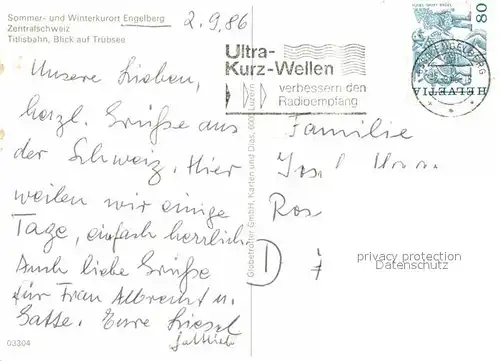 Sommer- und Winterkurort Engelberg
Zentralschweiz
Titlisbahn, Blick auf Trübsee
2.9.86
Unsere Lieben,
herzl. Grüße aus
der Schweiz. Hier
weilen wir einige
Tage, einfach herrlich
Auch liebe Grüße
für Frau Albrecht u.
Gatte. Eure Liesel
03304
Globetrotter GmbH, Karten und Dias, Luzern
Ultra-
Kurz-Wellen
verbessern den
Radioempfang
80
HELVETIA
ENGELBERG
Familie
Ros
D
privacy protection
Datenschutz